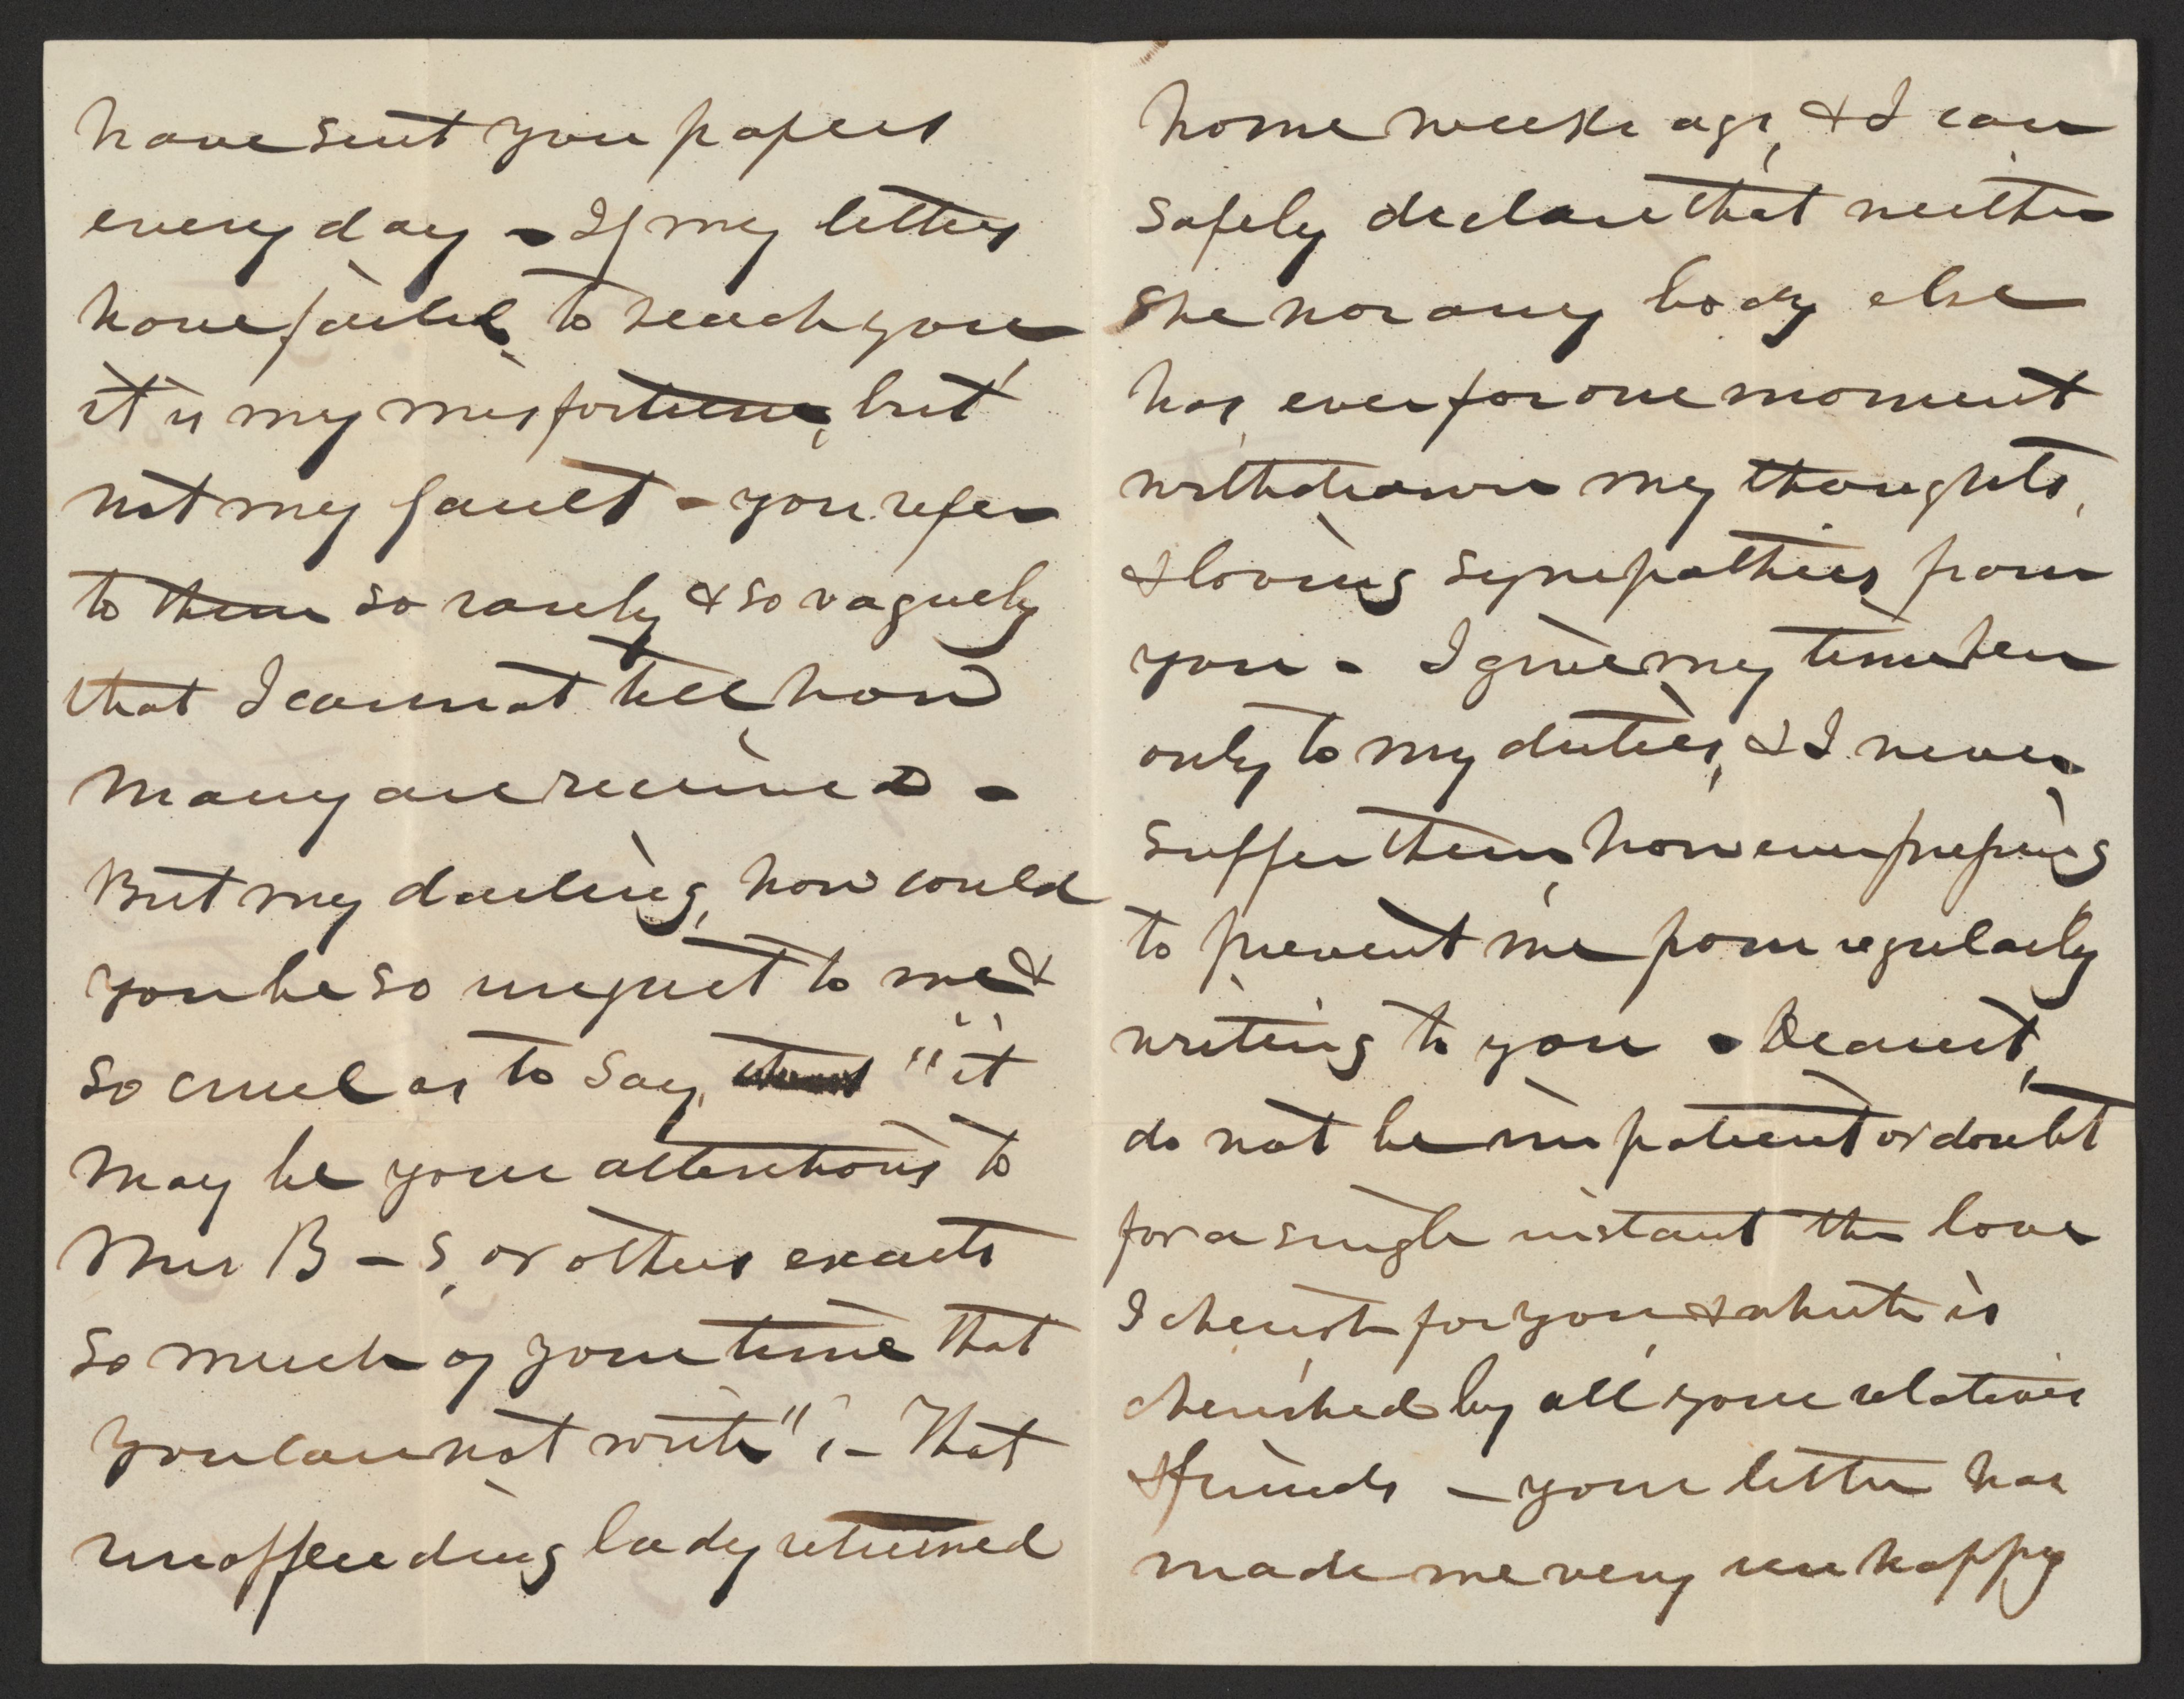 have sent you papers
every day - If my letters
have failed, to reach you,
it is my misfortune, but
not my fault - you refer
to them so rarely & so vaguely
that I cannot tell, how
many are received -
But my darling, how could
you be so unjust to me &
so cruel as to say, "it
may be your attentions to
Mrs B - s, or others exacts
so much of your time that
you can not write"; - That
unoffending lady returned
home weeks ago, & I can
safely declare that neither
she nor any body else
has, ever for one moment
withdrawn my thoughts,
& loving sympathies, from
you - I give my time here
only to my duties, & I never
suffer them, however pressing
to prevent me from regularly
writing to you - Dearest,
do not be impatient or doubt
for a single instant the love
I cherish for you, & which is
cherished by all your relatives
& friends - your letter has
made me very unhappy